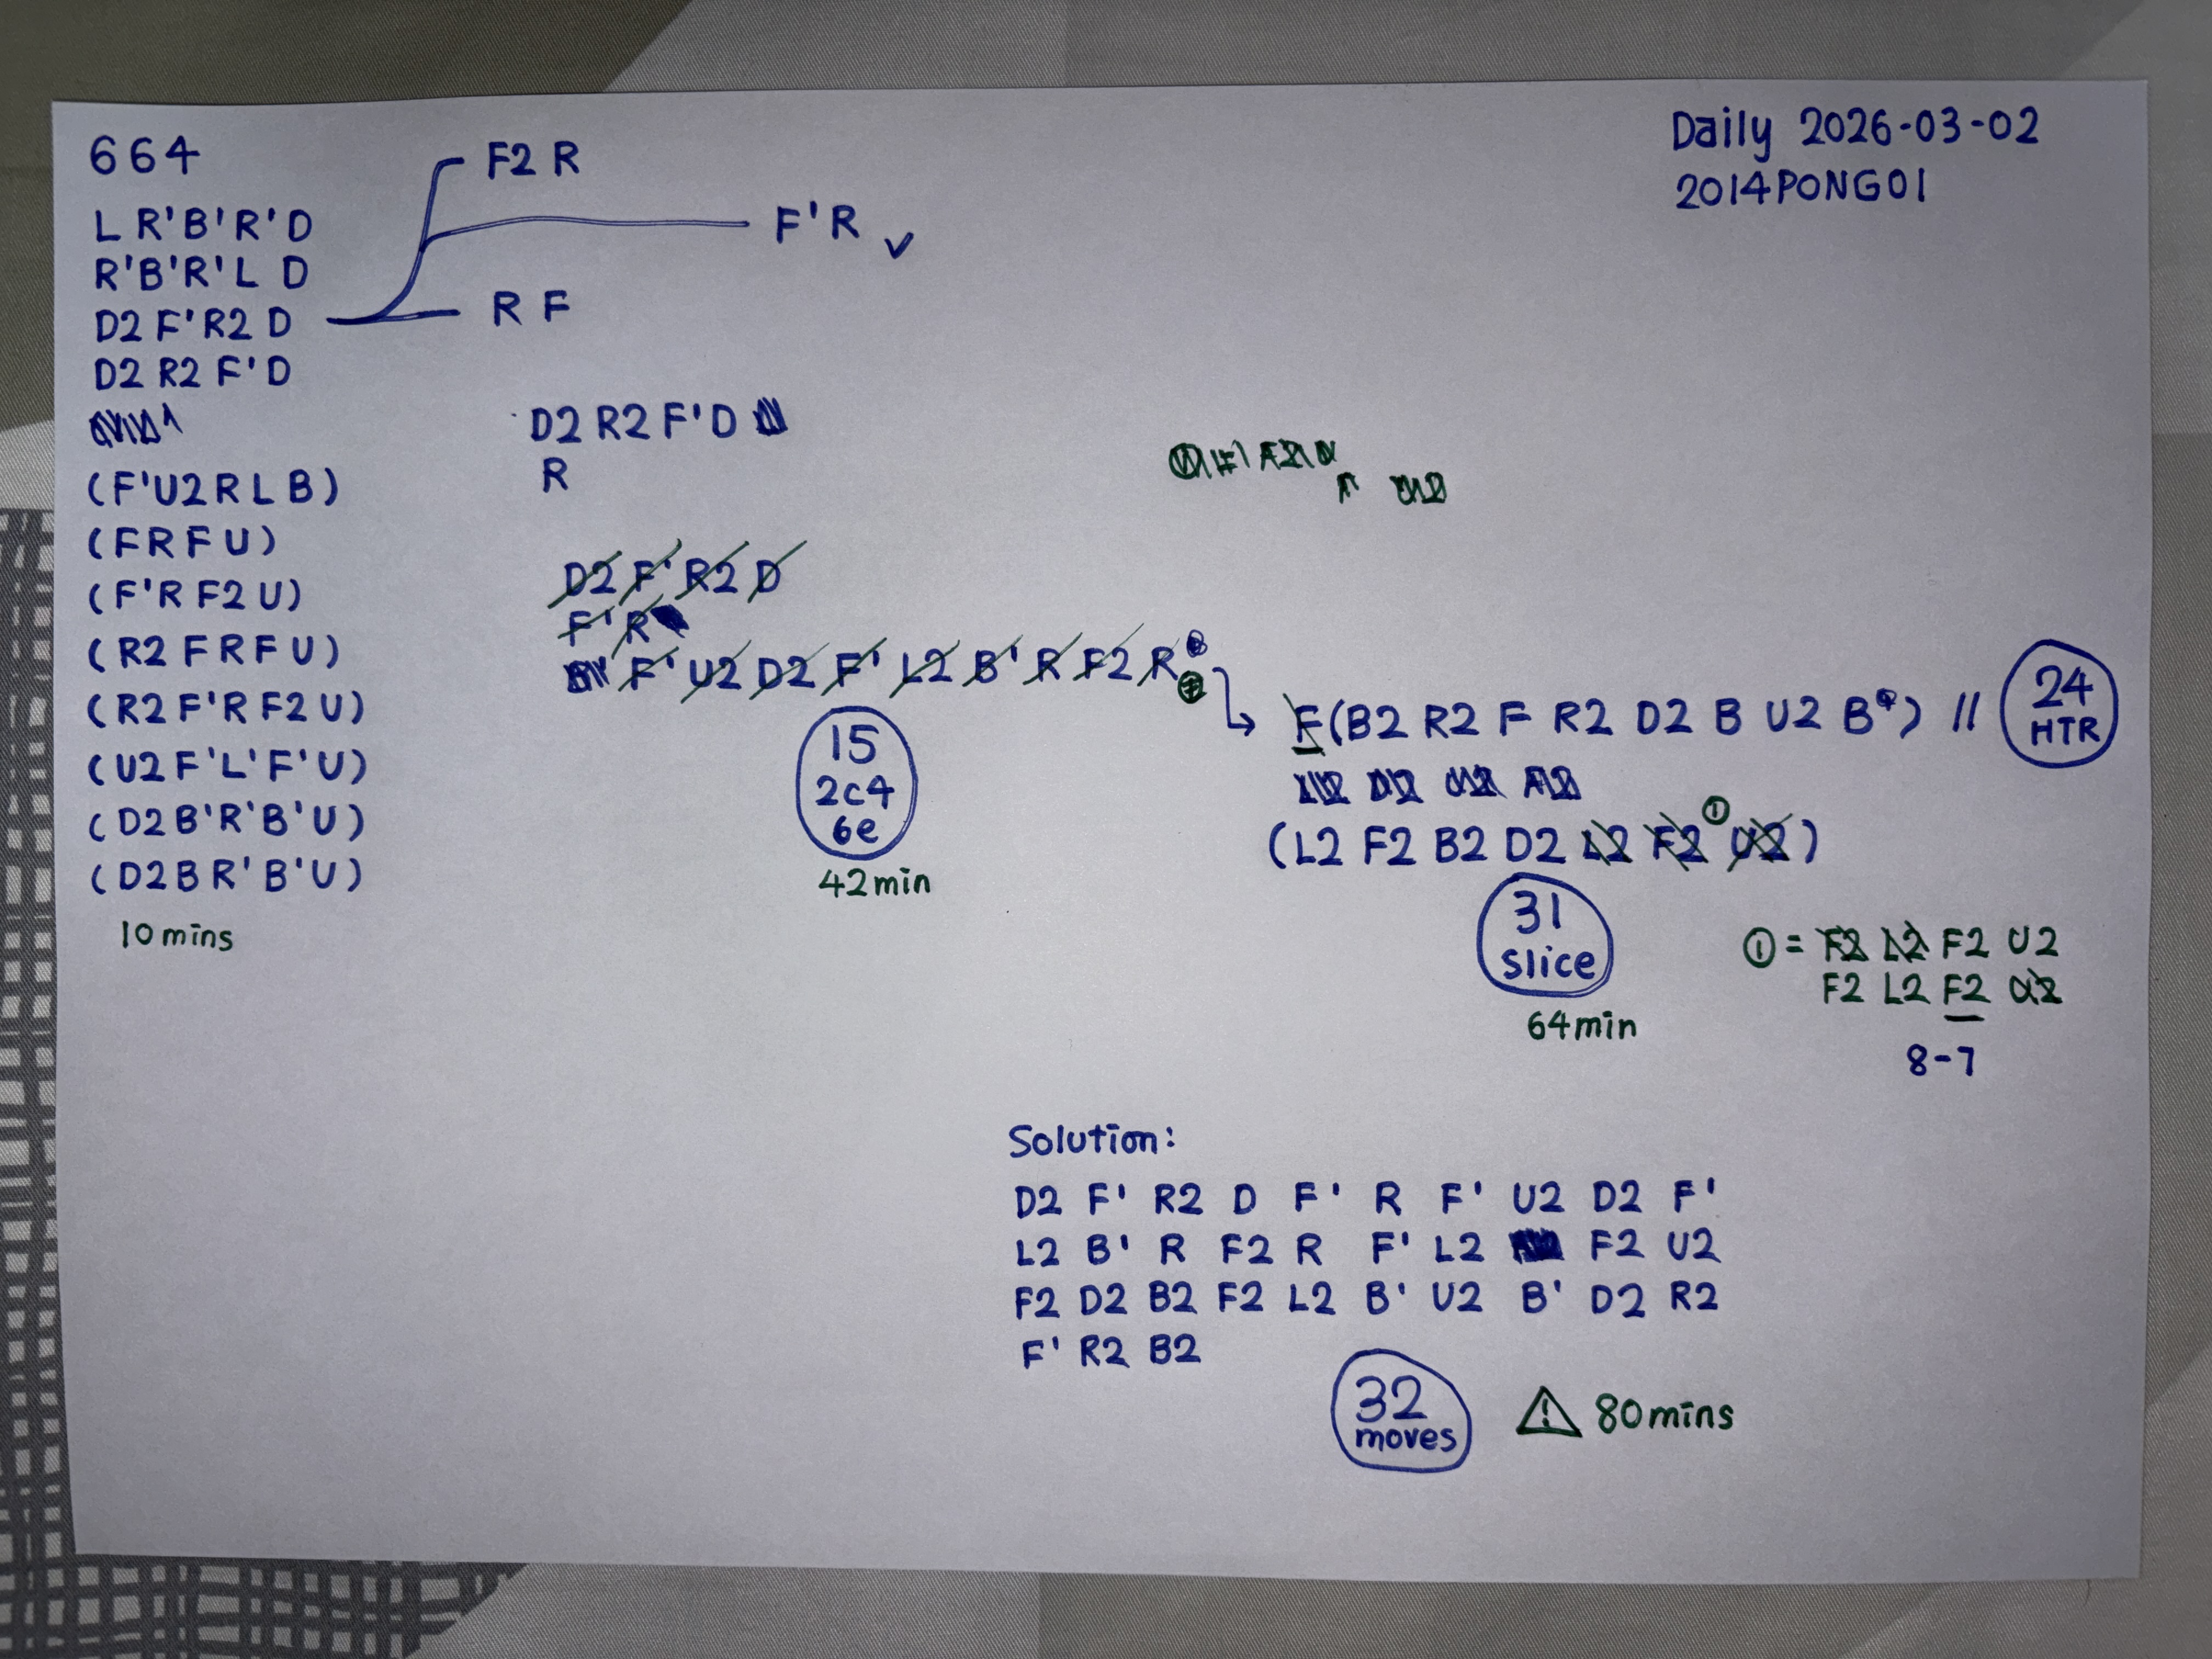 Daily 2026-03-02
2014PONG01
664
L R'B'R'D
R'B'R'L D
D2 F'R2 D
D2 R2 F'D
(F'U2 R L B)
(F R F U)
(F'R F2 U)
(R2 F R F U)
(R2 F'R F2 U)
(U2 F'L'F'U)
(D2 B'R'B'U)
(D2 B R'B'U)
10 mins
F2 R
F'R ✓
R F
D2 R2 F'D
R
D2 F' R2 D
F' R
F' U2 D2 F' L2 B' R F2 R
15
2c4
6e
42min
F (B2 R2 F R2 D2 B U2 B) // 24 HTR
(L2 F2 B2 D2 L2 F2 ① U2)
31
slice
64min
① = F2 L2 F2 U2
F2 L2 F2 U2
8-7
Solution:
D2 F' R2 D F' R F' U2 D2 F'
L2 B' R F2 R F' L2 F2 U2
F2 D2 B2 F2 L2 B' U2 B' D2 R2
F' R2 B2
32
moves
⚠ 80mins